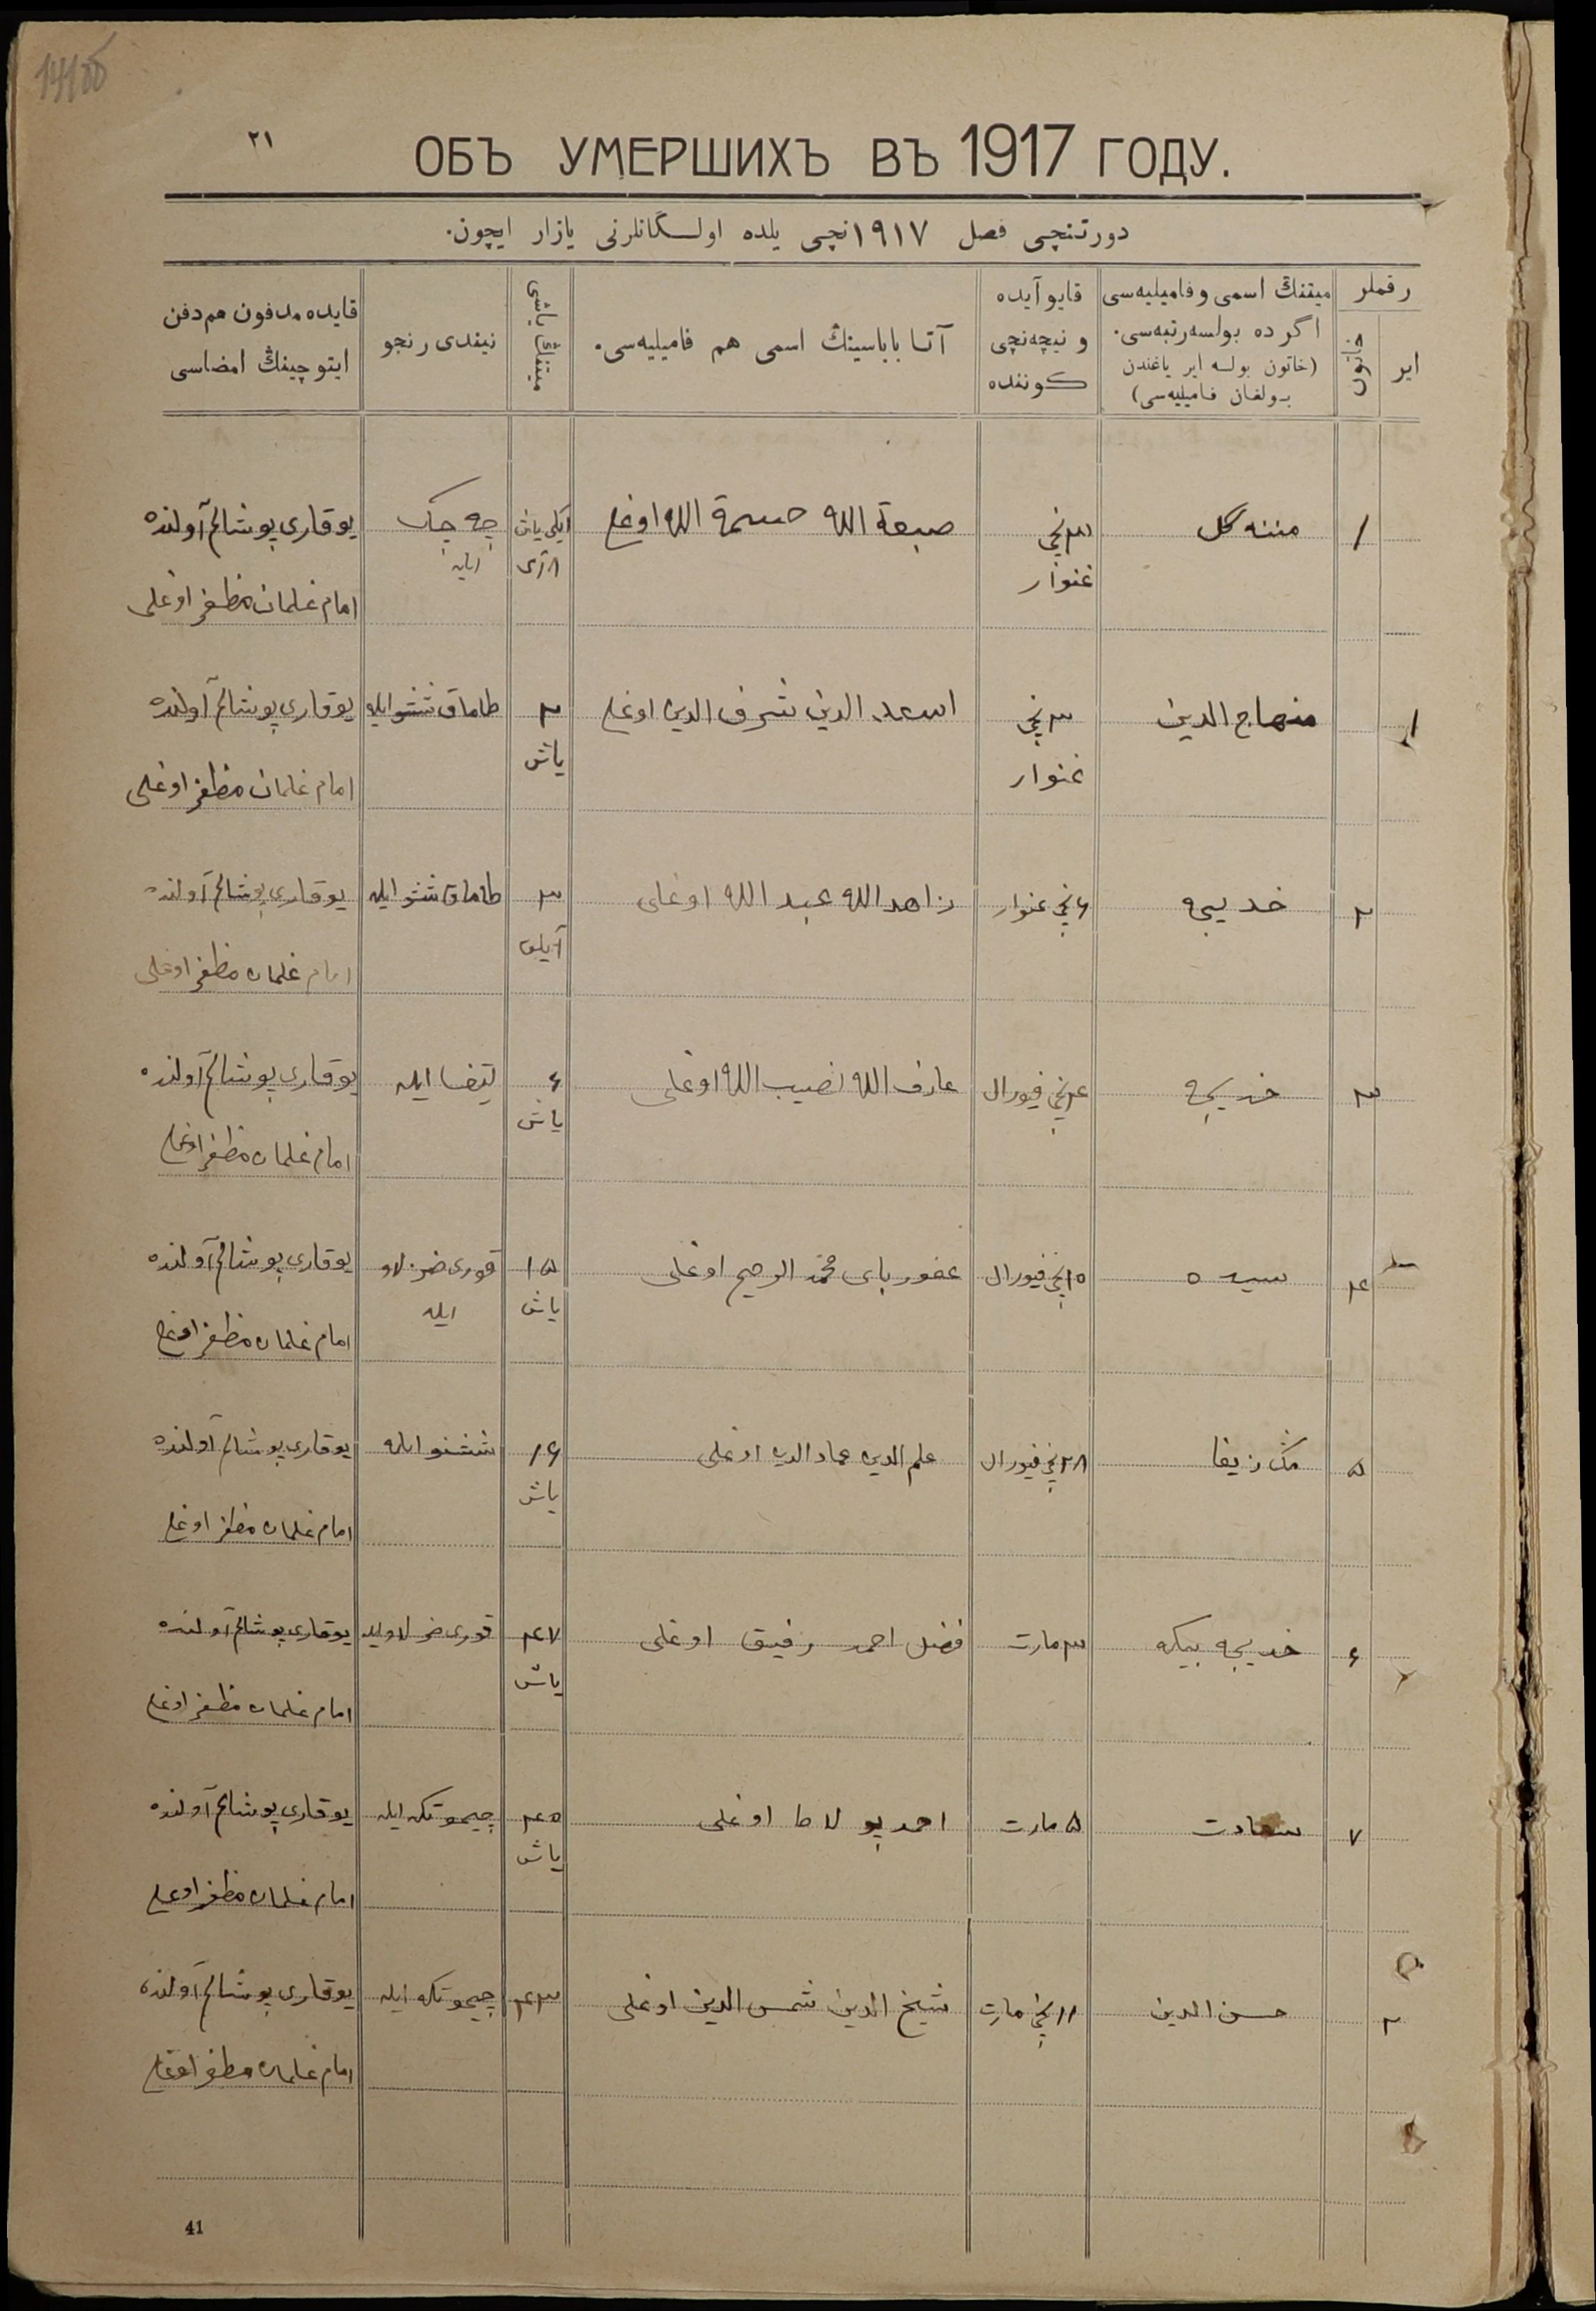 ٢١
ОБЪ УМЕРШИХЪ ВЪ 1917 ГОДУ.
دورتنچی فصل ١٩١٧نچی یلده اولـگانلرنی یازار ایچون.
رقملر
ایر
خاتون
میتنڭ اسمی وفامیلیه‌سی
اگرده بولسه رتبه‌سی.
(خاتون بولسه ایر یاغندن
بـولغان فـامیلیه‌سی)
قایو آیده
و نیچه‌نچی
کوننده
آتـا بـاباسینڭ اسمی هم فامیلیه‌سی.
میتنڭ یاشی
نیندی رنجو
قایده مدفون هم دفن
ایتوچینڭ امضاسی
١ مننه کل ٣نچی غنوار صبعة الله حسمة الله اوغلی ایکی یاش ٨ آی چه چاک ایله یوقاری پوشالم آولنده
امام غلمان مظفر اوغلی
١ منهاج الدین ٣نچی غنوار اسعد الدین شرف الدین اوغلی ٢ یاش طاماق ششو ایله یوقاری پوشالم آولنده
امام غلمان مظفر اوغلی
٢ خدیجه ٦نچی غنوار زاهدالله عبدالله اوغلی ٣ آیلق طاماق ششو ایله یوقاری پوشالم آولنده
امام غلمان مظفر اوغلی
٣ خدیجه ٤نچی فیورال عارف الله نصیب الله اوغلی ٦ یاش ایله یوقاری پوشالم آولنده
امام غلمان مظفر اوغلی
٤ سیده ١٥نچی فیورال غفور بای محمد الرحیم اوغلی ١٥ یاش قوری ایله یوقاری پوشالم آولنده
امام غلمان مظفر اوغلی
٥ مڭ زیفا ٢٨نچی فیورال علم الدین عماد الدین اوغلی ١٦ یاش ششنو ایله یوقاری پوشالم آولنده
امام غلمان مظفر اوغلی
٦ خدیجه بیکه ٣ مارت فضل احمد رفیق اوغلی ٤٧ یاش قوری یوقاری پوشالم آولنده
امام غلمان مظفر اوغلی
٧ سعادت ٥ مارت احمد اوغلی ٤٥ یاش چیموتکه ایله یوقاری پوشالم آولنده
امام غلمان مظفر اوغلی
٢ حسن الدین ١١نچی مارت شیخ الدین شمس الدین اوغلی ٤٣ چیموتکه ایله یوقاری پوشالم آولنده
امام غلمان مظفر اوغلی
41